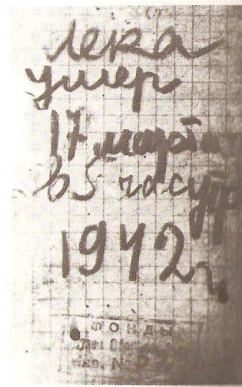 Лека
умер
17 марта
в 5 час утр
1942 г.
ФОНДЫ